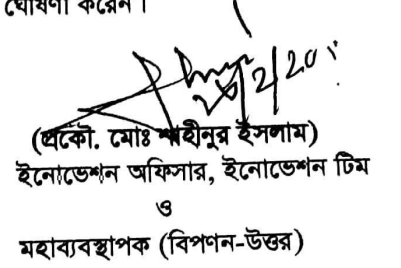 ঘোষণা করেন।
(প্রকৌ. মোঃ শাহীনুর ইসলাম)
ইনোভেশন অফিসার, ইনোভেশন টিম
ও
মহাব্যবস্থাপক (বিপণন-উত্তর)